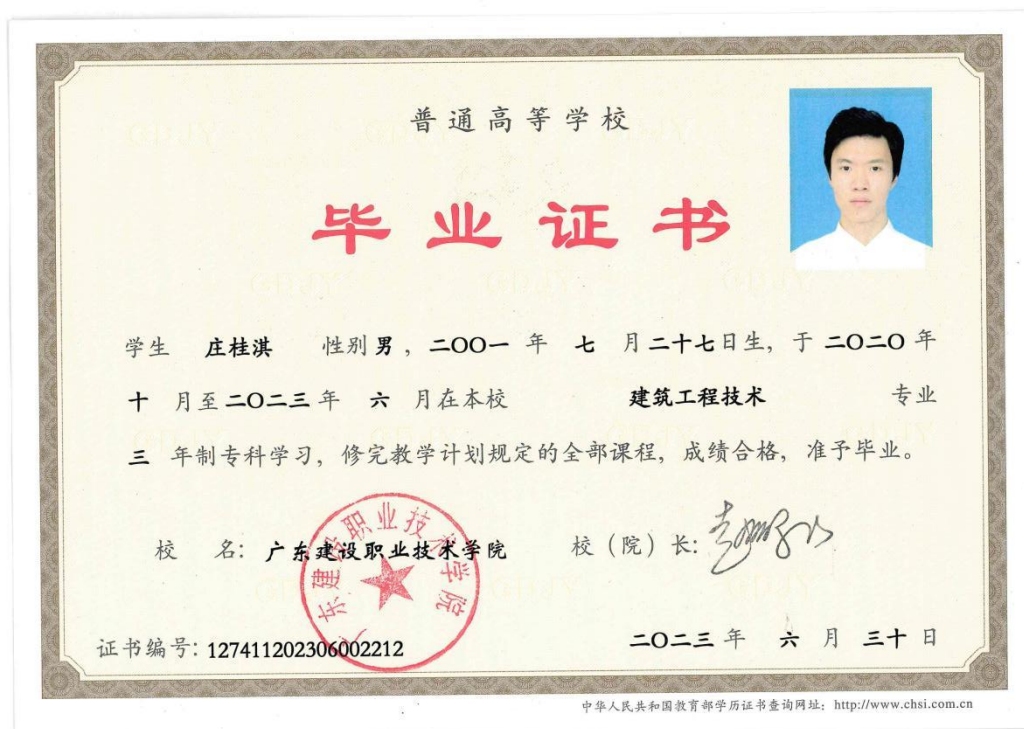 普通高等学校
毕业证书
学生 庄桂淇 性别 男，二〇〇一 年 七 月 二十七日生，于 二〇二〇 年
十 月至 二〇二三 年 六 月在本校 建筑工程技术 专业
三 年制专科学习，修完教学计划规定的全部课程，成绩合格，准予毕业。
校 名：广东建设职业技术学院 校（院）长：
广东建设职业技术学院
证书编号：127411202306002212 二〇二三 年 六 月 三十 日
中华人民共和国教育部学历证书查询网址：http://www.chsi.com.cn